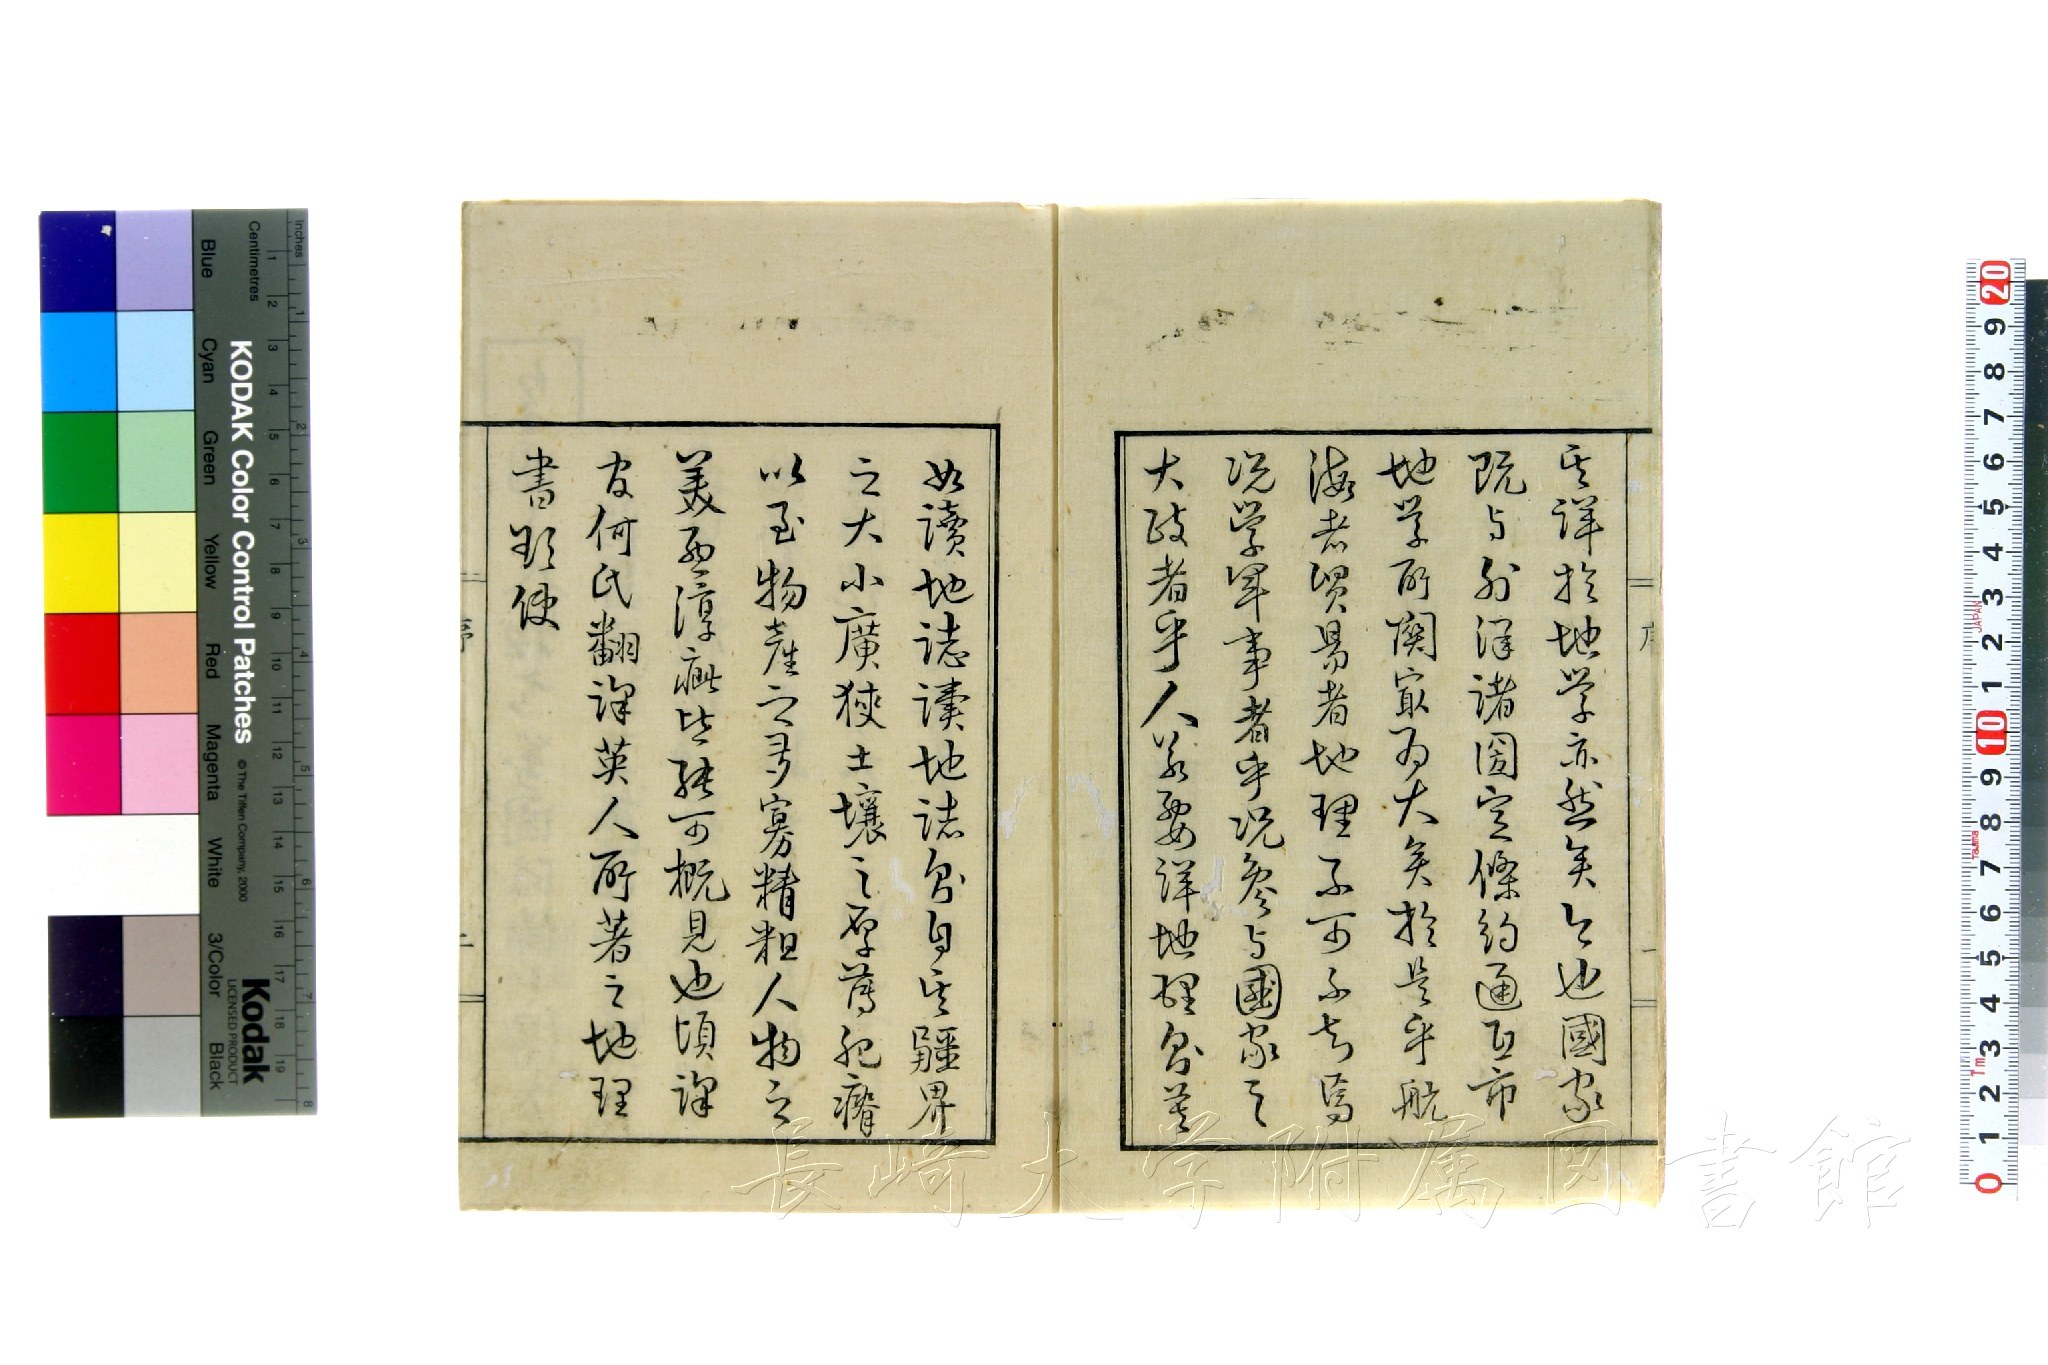 其詳於地学亦然矣今也國家
既与外洋諸国定條約通互市
地学所関寂為大矣於是乎航
海者貿易者地理不可不知焉
况学軍事者乎况参与國家之
大政者乎人若要詳地理則莫
如讀地誌讀地誌則自其疆界
之大小廣狹土壤之厚薄肥瘠
以至物産之多寡精粗人物之
美惡淳疵皆能可概見也頃譯
官何氏翻譯英人所著之地理
書題使
序
長崎大学附属図書館
KODAK Color Control Patches
© The Tiffen Company, 2000
Kodak
LICENSED PRODUCT
Inches
Centimetres
Blue
Cyan
Green
Yellow
Red
Magenta
White
3/Color
Black
1 2 3 4 5 6 7 8
1 2 3 4 5 6 7 8 9 10 11 12 13 14 15 16 17 18 19
20 9 8 7 6 5 4 3 2 1 10 9 8 7 6 5 4 3 2 1 0
JAPAN
TAJIMA
1m